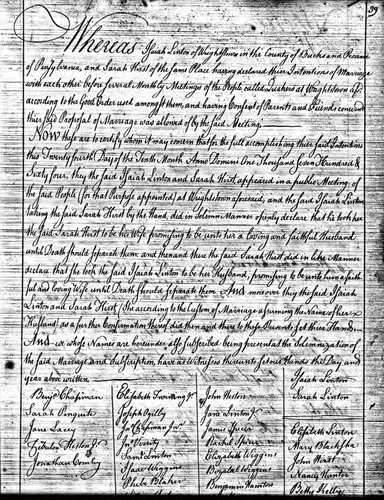 39
Whereas Isaiah Linton of Wrightstown in the County of Bucks and Province
of Pensylvania, and Sarah Hirst of the same Place having declared their Intentions of Marriage
with each other before several Monthly Meetings of the People called Quakers at Wrightstown
according to the Good Order used among them, and having Consent of Parents and Friends concerned
their said Proposal of Marriage was allowed of by the said Meeting.
NOW these are to certify whom it may concern that for the full accomplishing their said Intentions
this Twenty fourth Day of the Tenth Month Anno Domini One Thousand Seven Hundred &
Sixty four, they the said Isaiah Linton and Sarah Hirst, appeared in a publick Meeting of
the said People (for that Purpose appointed) at Wrightstown aforesaid, and the said Isaiah Linton
taking the said Sarah Hirst by the Hand, did in Solemn Manner openly declare that he took her
the said Sarah Hirst to be his Wife promising to be unto her a loving and faithful Husband
until Death should separate them and then and there the said Sarah Hirst did in like Manner
declare that she took the said Isaiah Linton to be her Husband, promising to be unto him a faith-
ful and loving Wife until Death should separate them. And moreover they the said Isaiah
Linton and Sarah Hirst (she according to the Custom of Marriage assuming the Name of her
Husband) as a further Confirmation thereof did then and there to these Presents set their Hands.
And we whose Names are hereunder also subscribed being present at the Solemnization of
the said Marriage and Subscription, have as Witnesses thereunto set our Hands the Day and
year above written.
Isaiah Linton
Sarah Linton
Benjn Chapman
Sarah Pinquite
Jane Lacey
Zebulon Heston Jr
Jonathan
Elizabeth Twining Jr
Joseph
Chapman Junr
Jno Verity
Saml Linton
Isaac Wiggins
Phebe Blaker
John Heston
Jane Linton Jr
James Spicer
Rachel Spicer
Elizabeth Wiggins
Bezaleel Wiggins
Benjamin Hamton
Elizabeth Linton
Mary
John Hirst
Nancy Hunter
Betty Kelley